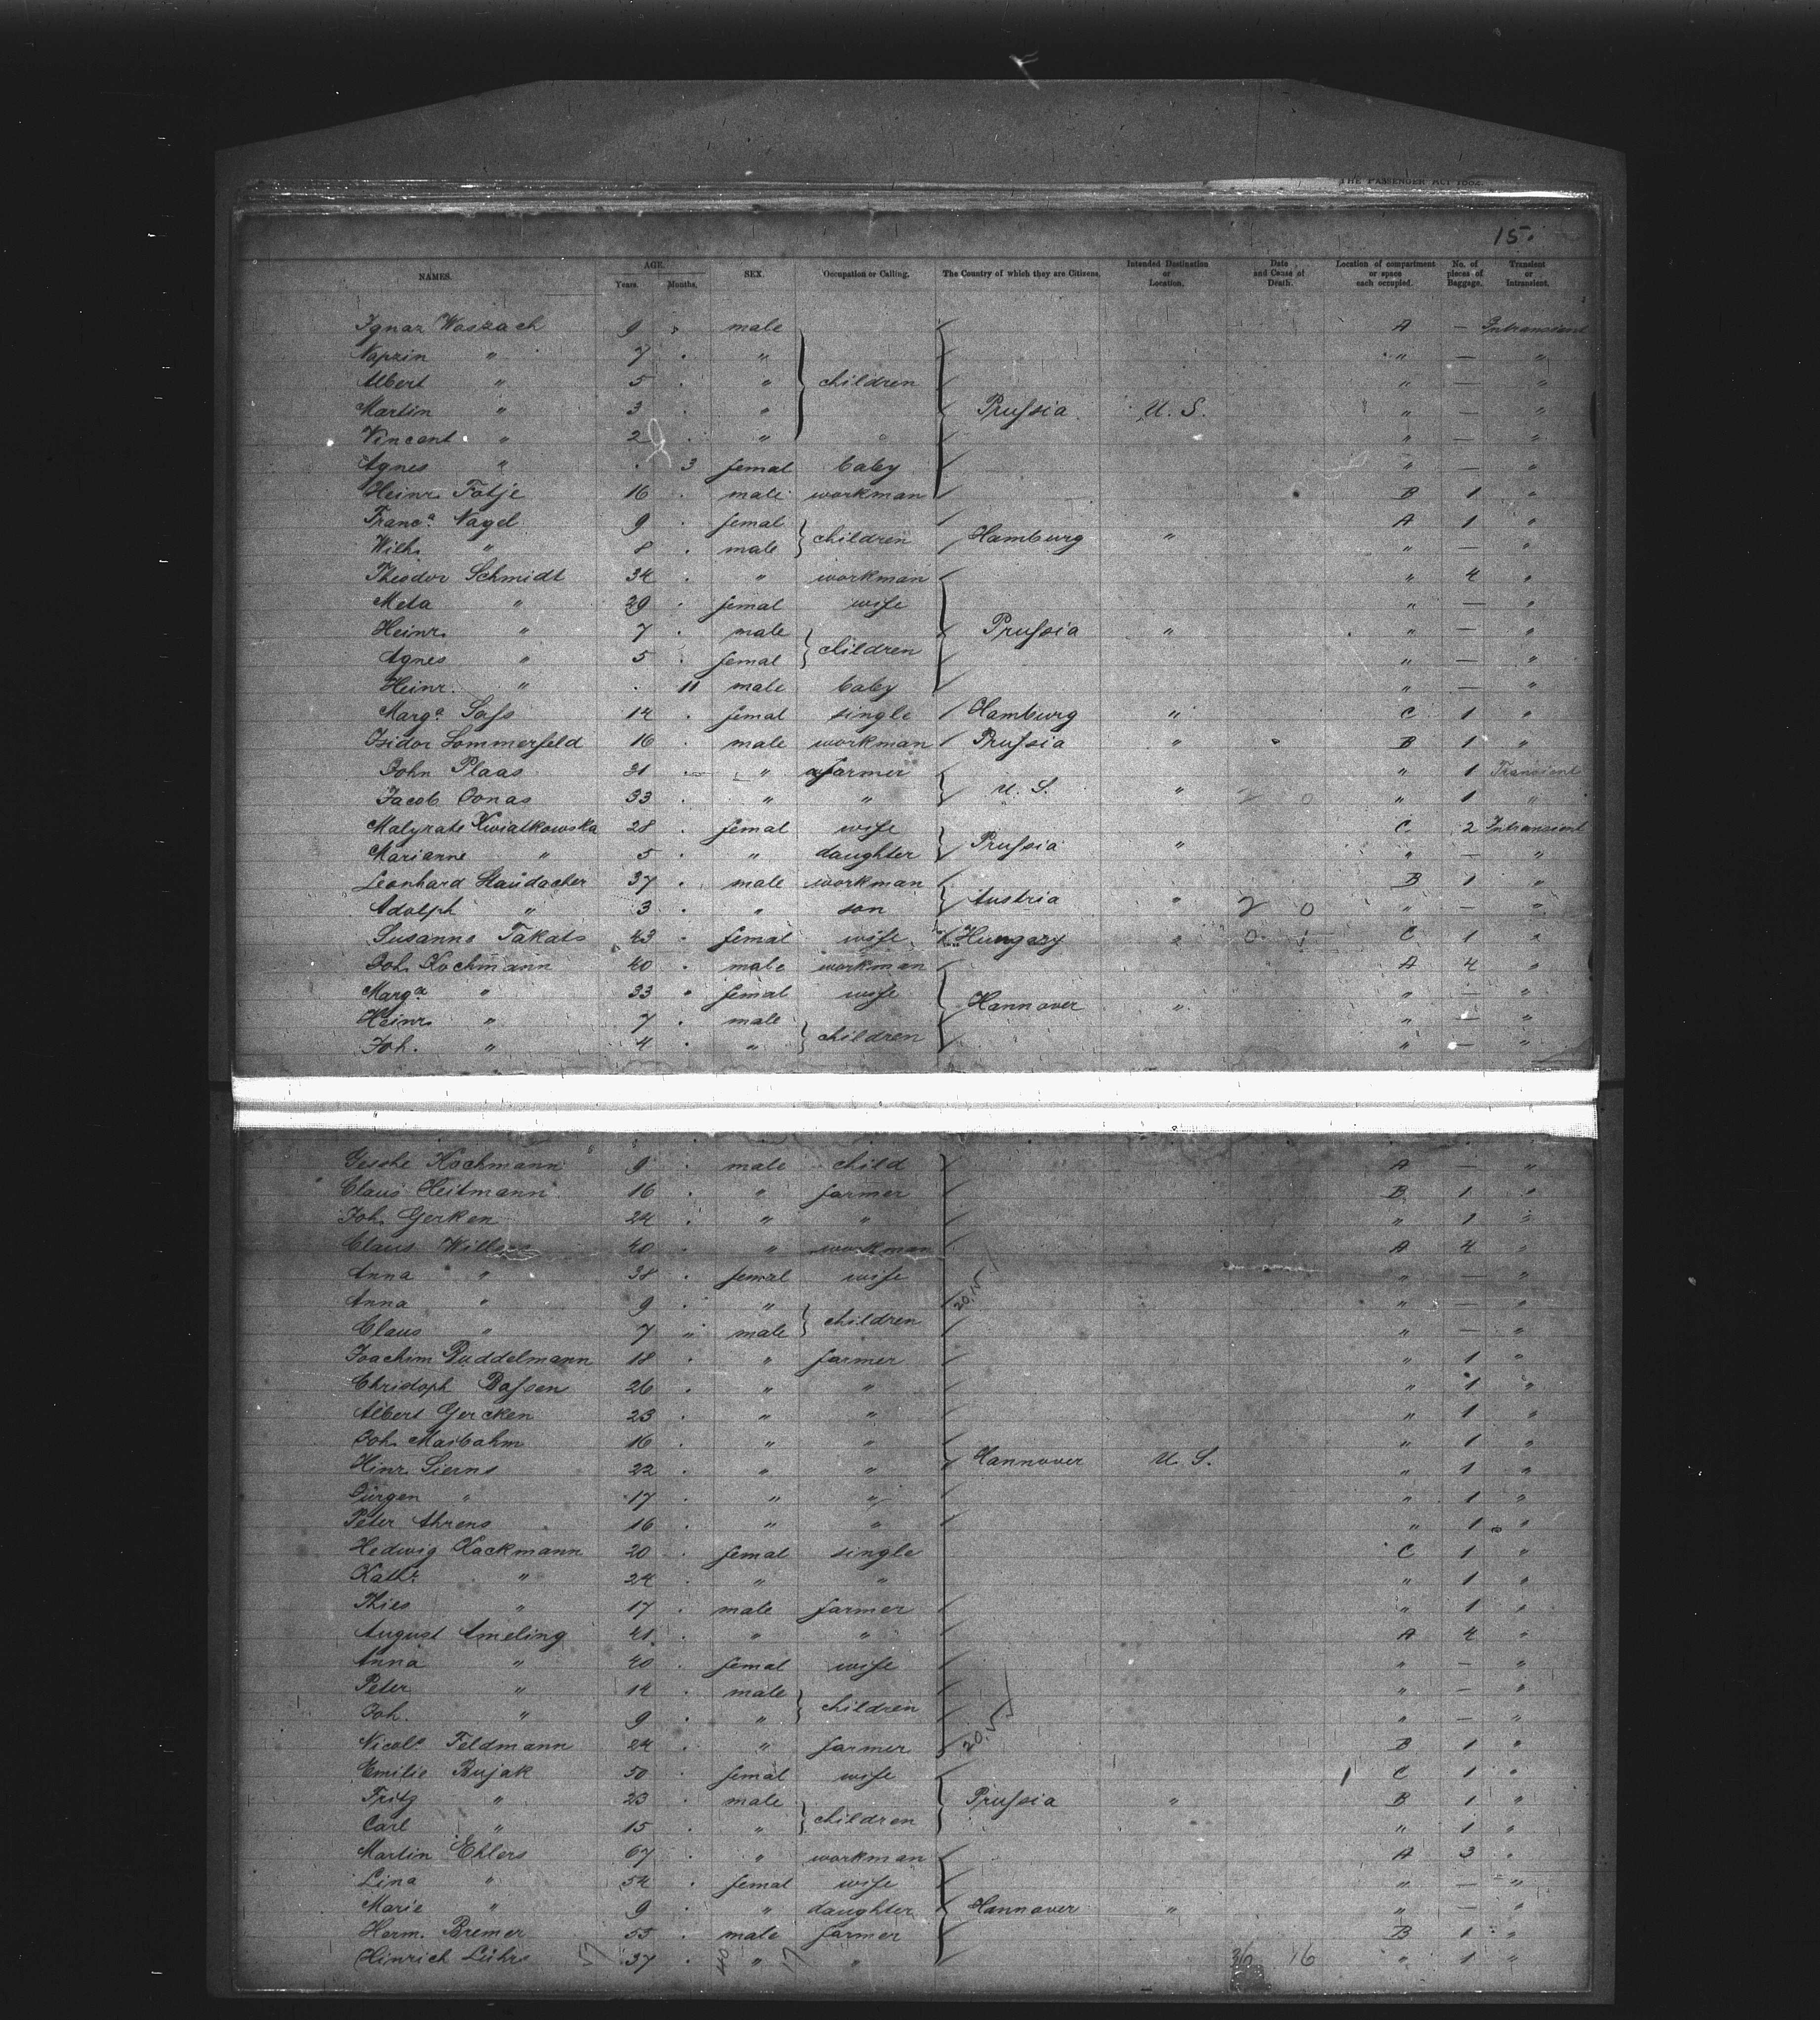 THE PASSENGER ACT 1882.
15.
NAMES. AGE. Years. Months. SEX. Occupation or Calling. The Country of which they are Citizens. Intended Destination or Location. Date and Cause of Death. Location of compartment or space each occupied. No. of pieces of Baggage. Transient or Intransient.
Ignaz Waszach 9 male A — Intransient
" 7 " " — "
Albert " 5 " children " — "
Martin " 3 " Prussia U. S. " — "
Vincent " 2 " " — "
Agnes " 3 femal baby " — "
Heinr. Fotje 16 male workman B 1 "
Franc.a Nagel 9 femal A 1 "
Wilh. " 8 male children Hamburg " " — "
Theodor Schmidt 34 " workman " 4 "
Meta " 29 femal wife " — "
Heinr. " 7 male Prussia " " — "
Agnes " 5 femal children " — "
Heinr. " 11 male baby " — "
Marg.a Sass 14 femal single Hamburg " C 1 "
Isidor Sommerfeld 16 male workman Prussia " B 1 "
John Plaas 31 " farmer " 1 Transient
Jacob Jonas 33 " " U. S. " " 1 "
Malyrate Kwiatkowska 28 femal wife C 2 Intransient
Marianne " 5 " daughter Prussia " " — "
Leonhard Staudacher 37 male workman B 1 "
Adolph " 3 " son Austria " 2 0 " — "
Susanne Takats 43 femal wife Hungary " 0 1 C 1 "
Joh. Kochmann 40 male workman A 4 "
Marg.a " 33 femal wife " — "
Heinr. " 7 male Hannover " " — "
Joh. " 4 " children " — "
Gesche Kochmann 9 male child A — "
Claus Heitmann 16 " farmer B 1 "
Joh. Gerken 24 " " " 1 "
Claus 40 " workman A 4 "
Anna " 38 femal wife " — "
Anna " 9 " " — "
Claus " 7 " male children " — "
Joachim Buddelmann 18 " farmer " 1 "
Christoph Bassen 26 " " " 1 "
Albert Gercken 23 " " " 1 "
Joh. Maibahm 16 " " " 1 "
Hinr. Sierns 22 " " Hannover U. S. " 1 "
Jürgen " 17 " " " 1 "
Peter Ahrens 16 " " " 1 "
Hedwig Hackmann 20 femal single C 1 "
Kath. " 24 " " " 1 "
Thies " 17 male farmer " 1 "
August Ameling 41 " " A 4 "
Anna " 40 femal wife " — "
Peter " 14 male " — "
Joh. " 9 " children " — "
Nicol. Feldmann 24 " farmer B 1 "
Emilie Bujak 50 femal wife C 1 "
Fritz " 23 male Prussia " B 1 "
Carl " 15 " children " 1 "
Martin Ehlers 67 " workman A 3 "
Lina " 54 femal wife " — "
Marie " 9 " daughter Hannover " " — "
Herm. Bremer 55 male farmer B 1 "
Hinrich Lührs 37 " " 36 16 " 1 "